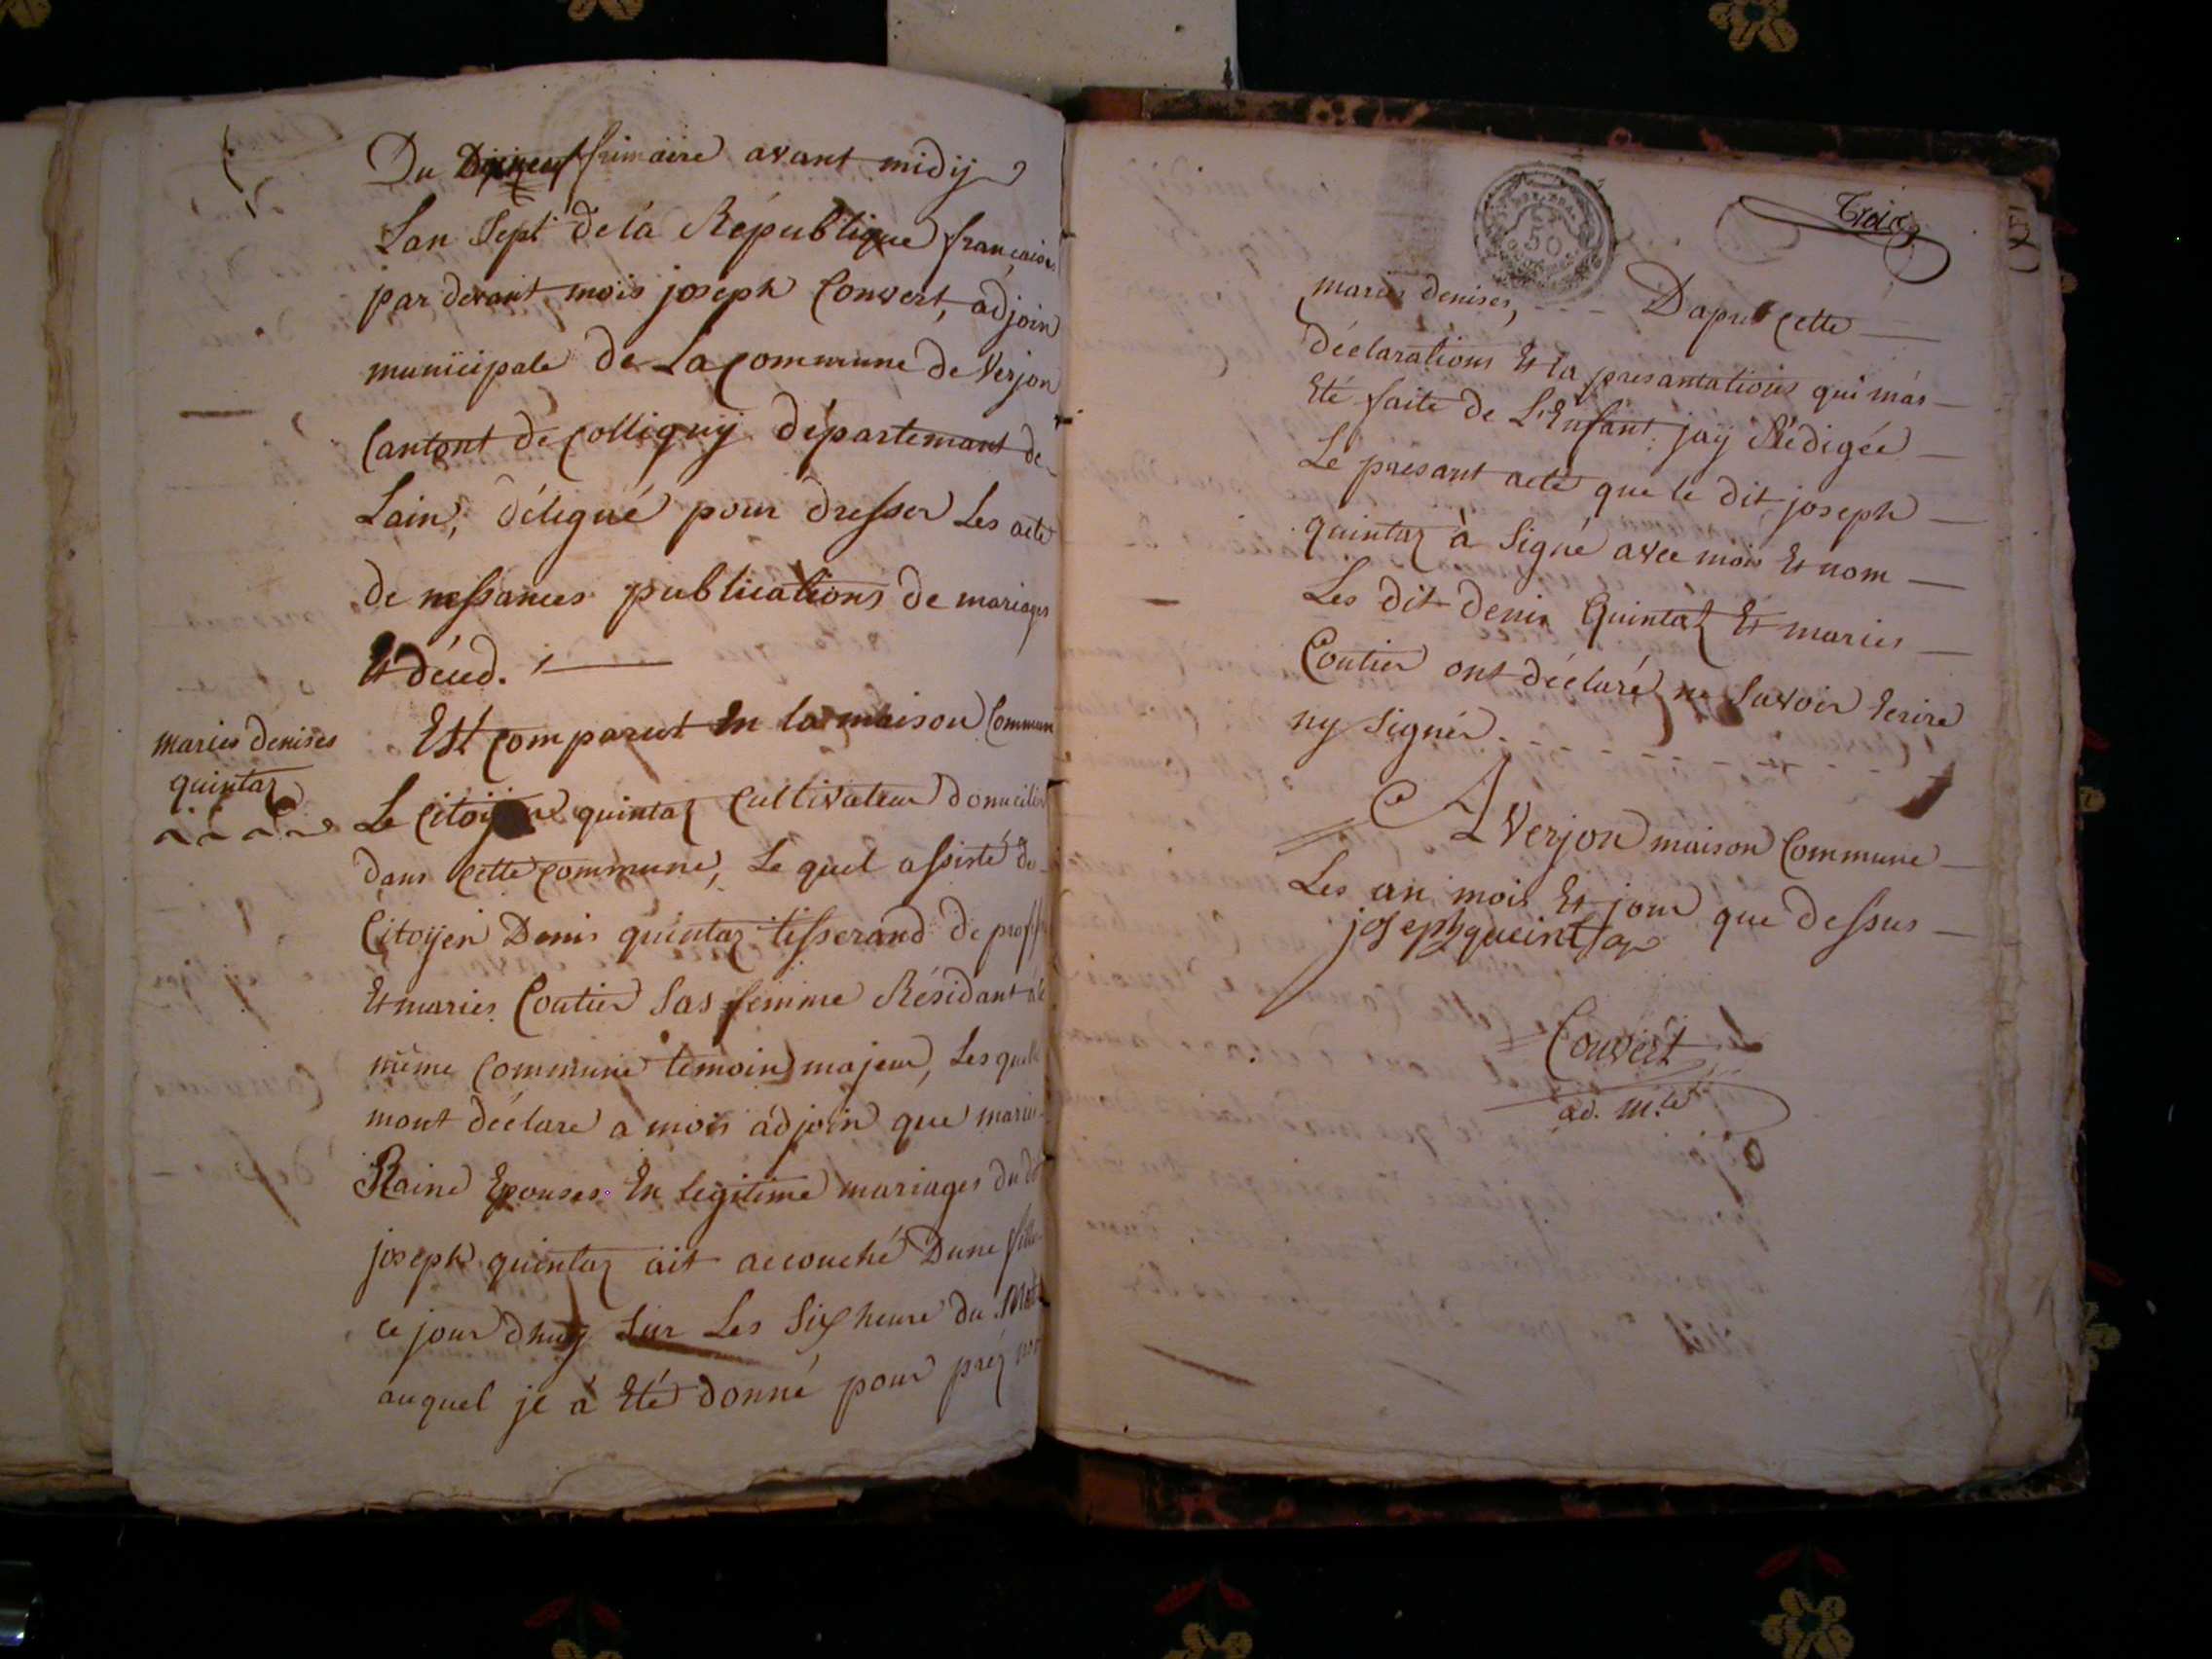 Du Dixneuf frimaire avant midij
Lan Sept de la République française
par devant mois joseph Convert, adjoin
municipale de La Commune de Verjon
Cantont de Colliguij département de
Lain, délégué pour dresser Les acte
de nessances publications de mariages
Et déced.
maries denises
quintaz
Est comparut En la maison Commun
Le Citoijen quintaz Cultivateur domicilié
dans cette Commune, Le quel assisté de
Citoijen Denis quintaz tisserand de
Et maries Coutier Sas femme Résidant
même Commune temoin majeur, Les
mont déclare a mois adjoin que marie
Raine Epouses En legitime mariages du
joseph quintaz ait accouché Dune fille
ce jour dhuij Sur Les Six heure du
auquel je a Eté donné pour prez nom
Trois
50
maries denises, Dapres Cette
déclarations Et la presantations qui mas
Eté faite de L'Enfant jaij Rédigée
Le presant acte que le dit joseph
quintaz à Signé avec mois Et nom
Les dit denis Quintaz Et maries
Coutier ont déclaré ne Savoir Ecrire
ny Signér.
A Verjon maison Commune
Les an mois Et jour que dessus
joseph queintas
Convert
ad. m.le